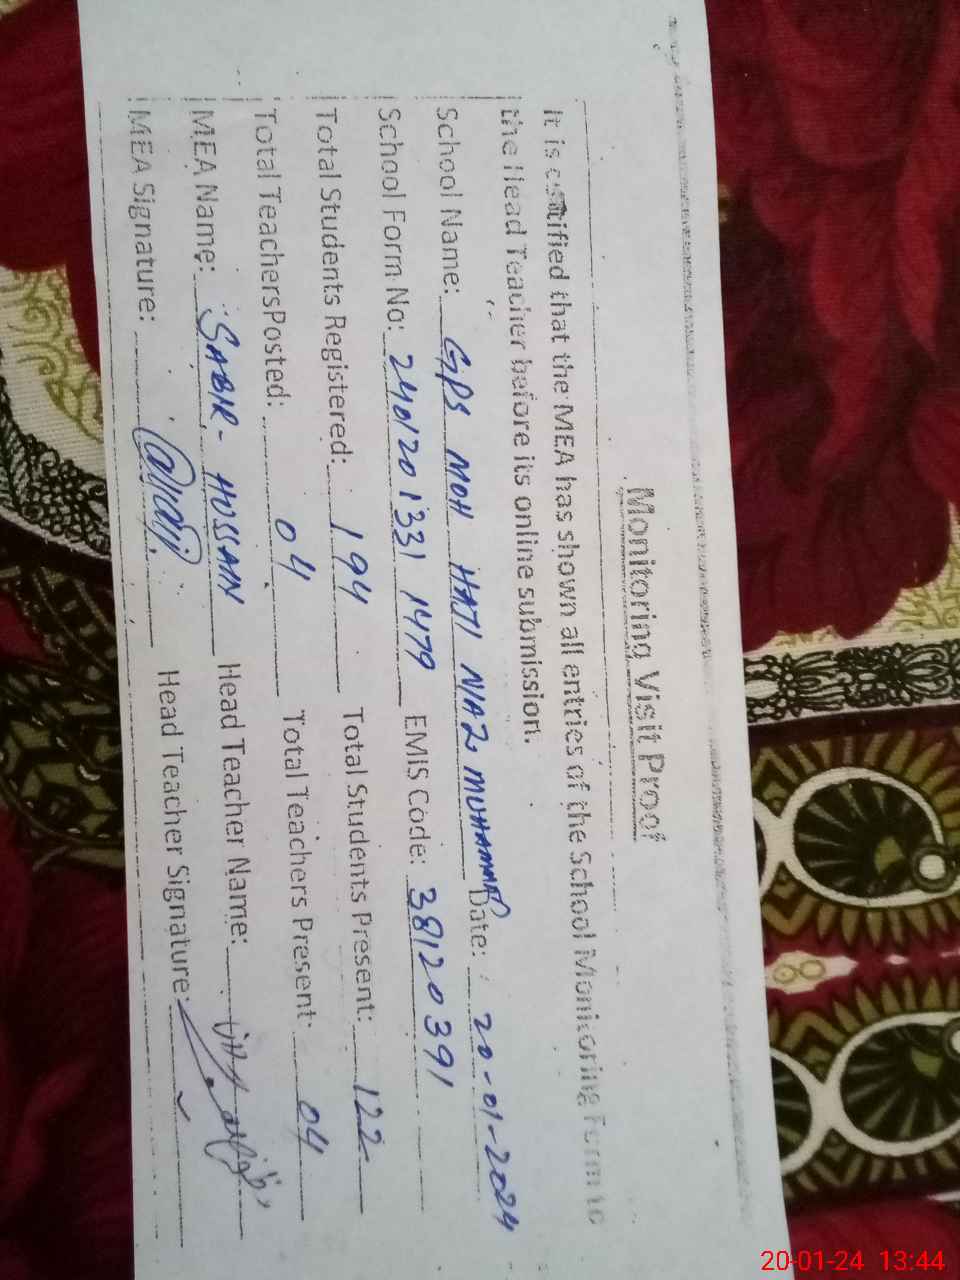 Monitoring Visit Proof
It is certified that the MEA has shown all entries of the School Monitoring Form to
the Head Teacher before its online submission.
School Name: GPS MOH HAJI NIAZ MUHAMMAD Date: 20-01-2024
School Form No: 240120 1331 1479 EMIS Code: 38120391
Total Students Registered: 194 Total Students Present: 122
Total TeachersPosted: 04 Total Teachers Present: 04
MEA Name: SABIR HUSSAIN Head Teacher Name:
MEA Signature: Head Teacher Signature:
20-01-24 13:44